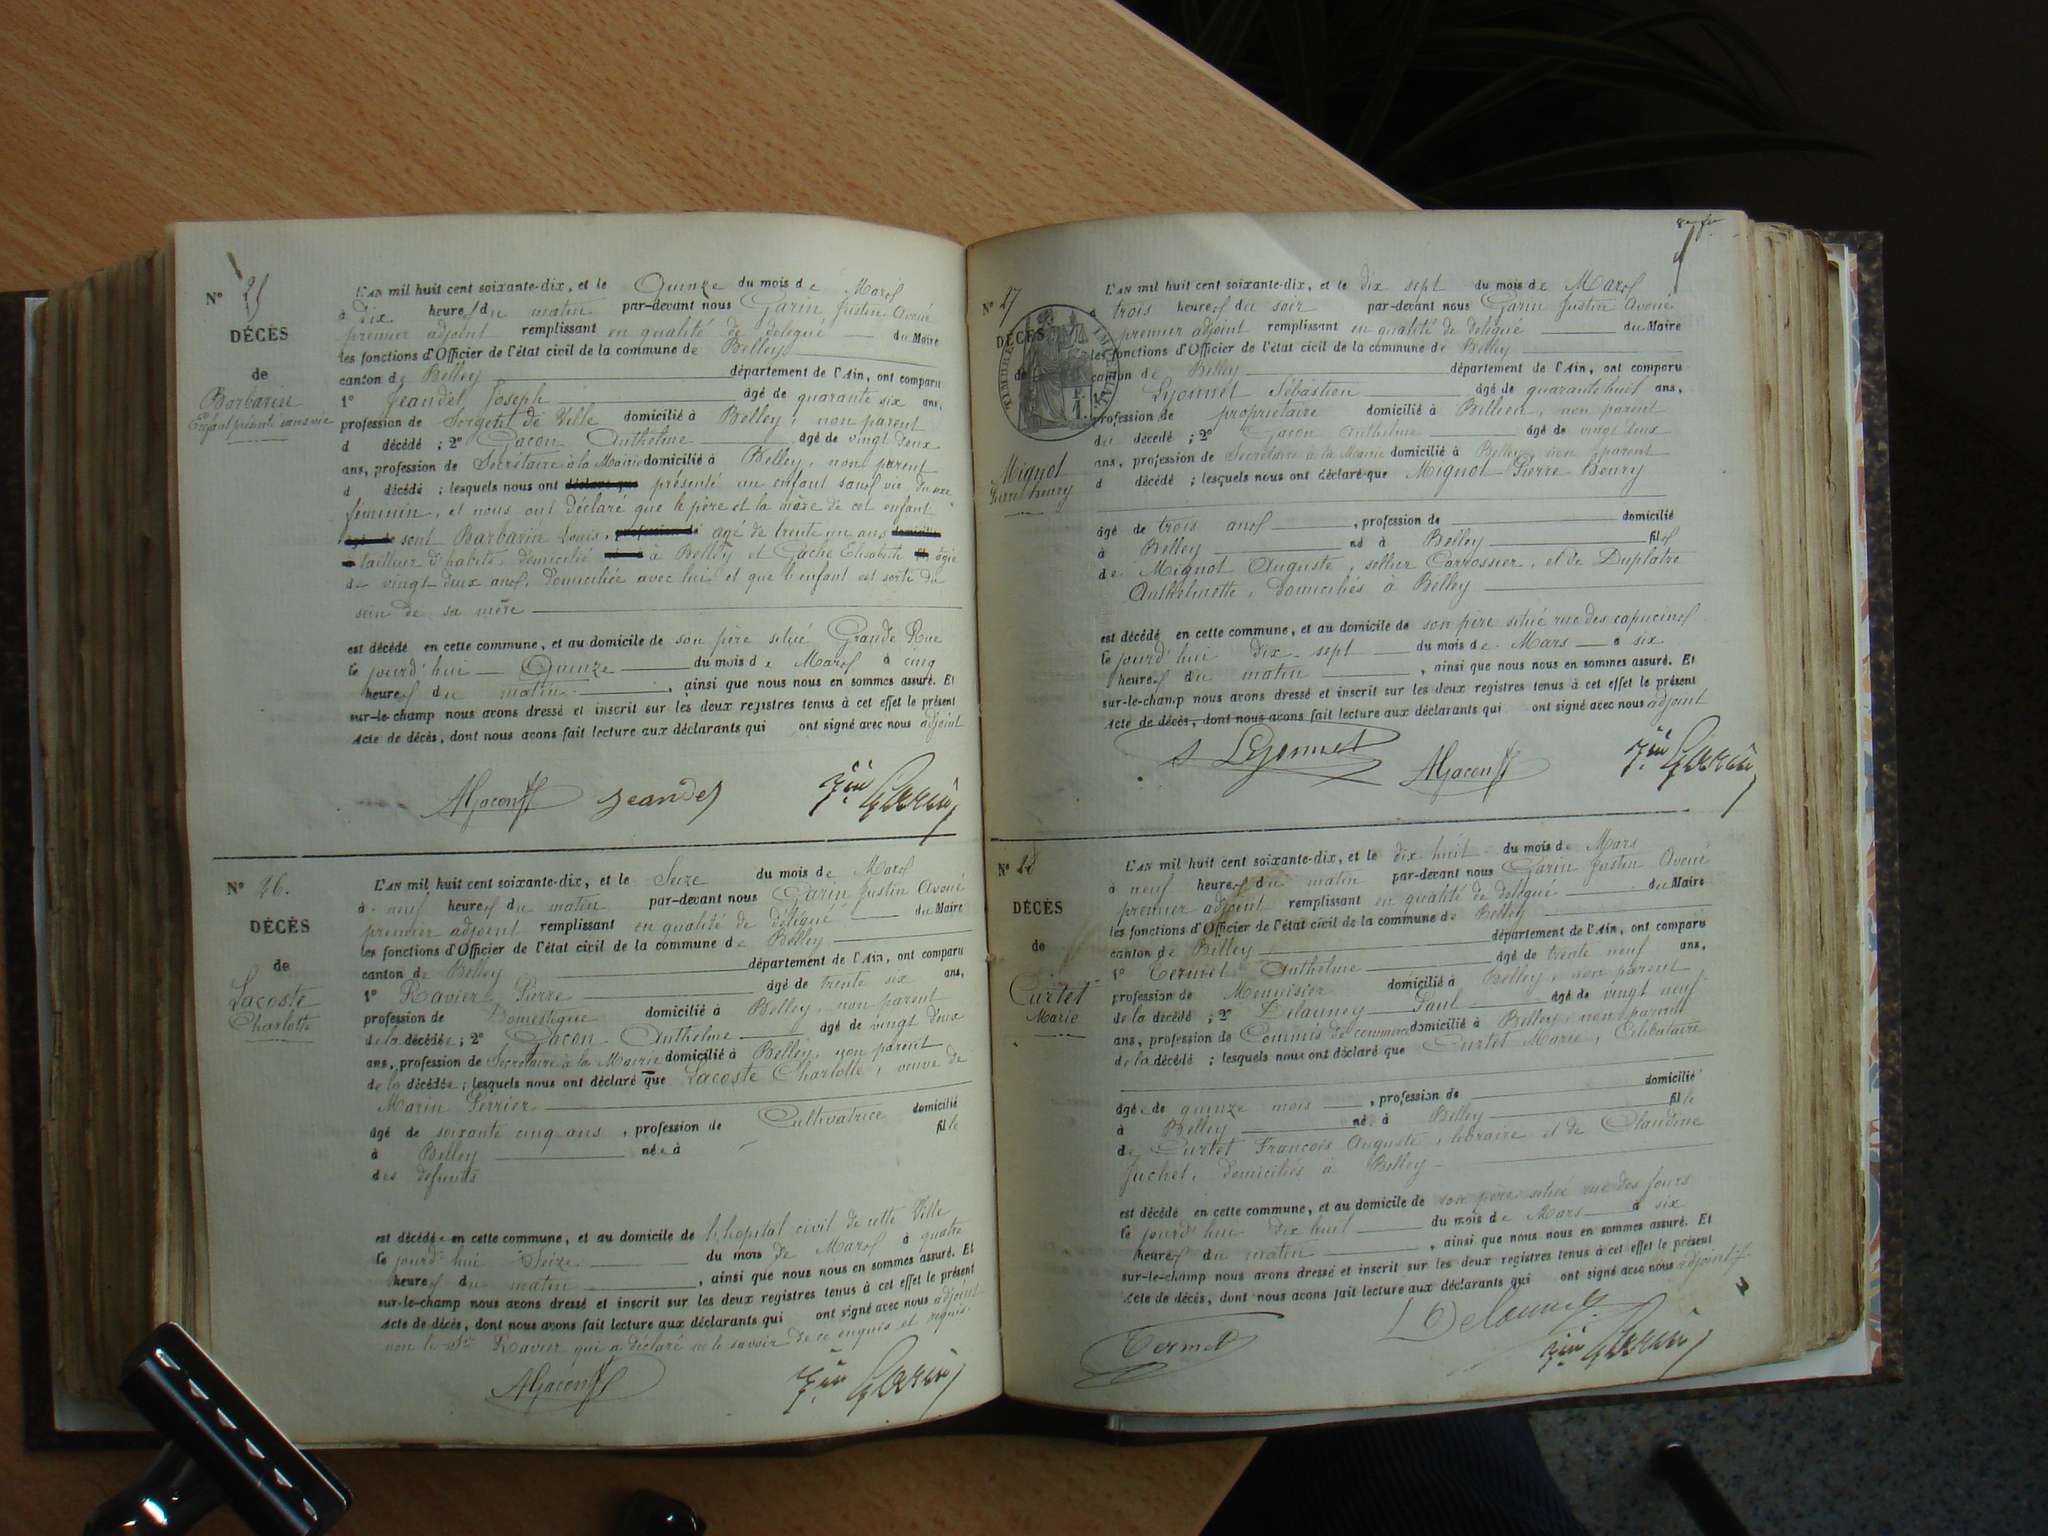 N° 25
DÉCÈS
de
Barbarin
Enfant présenté sans vie
L'AN mil huit cent soixante-dix, et le Quinze du mois de Mars
à dix heures du matin par-devant nous Garin Justin Avoué
premier adjoint remplissant en qualité de délégué du Maire
les fonctions d'Officier de l'état civil de la commune de Belley
canton de Belley département de l'Ain, ont comparu
1° Jeandet Joseph âgé de quarante six ans,
profession de Sergent de Ville domicilié à Belley, non parent
d décédé ; 2° Gacon Anthelme âgé de vingt deux
ans, profession de Secrétaire à la Mairie domicilié à Belley, non parent
d décédé ; lesquels nous ont déclaré que présenté un enfant sans vie du sexe
féminin, et nous ont déclaré que le père et la mère de cet enfant
sont Barbarin Louis, profession de agé de trente un ans domicilié
tailleur d'habits, domicilié à Belley et Gache Elisabeth agée
de vingt deux ans, domiciliée avec lui et que l'enfant est sorti du
sein de sa mère
est décédé en cette commune, et au domicile de son père situé Grande Rue
le jourd'hui Quinze du mois de Mars à cinq
heures du matin , ainsi que nous nous en sommes assuré. Et
sur-le-champ nous avons dressé et inscrit sur les deux registres tenus à cet effet le présent
acte de décès, dont nous avons fait lecture aux déclarants qui ont signé avec nous adjoint
AGacon Jeandet Garin
N° 26.
DÉCÈS
de
Lacoste
Charlotte
L'AN mil huit cent soixante-dix, et le Seize du mois de Mars
à neuf heures du matin par-devant nous Garin Justin Avoué
premier adjoint remplissant en qualité de délégué du Maire
les fonctions d'Officier de l'état civil de la commune de Belley
canton de Belley département de l'Ain, ont comparu
1° Ravier Pierre âgé de trente six ans,
profession de Domestique domicilié à Belley, non parent
de la décédée ; 2° Gacon Anthelme âgé de vingt deux
ans, profession de Secrétaire à la Mairie domicilié à Belley, non parent
de la décédée ; lesquels nous ont déclaré que Lacoste Charlotte, veuve de
Marin Perrier
âgé de soixante cinq ans , profession de Cultivatrice domicilié
à Belley née à fille
des défunts
est décédée en cette commune, et au domicile de l'hopital civil de cette Ville
le jourd'hui Seize du mois de Mars à quatre
heures du matin , ainsi que nous nous en sommes assuré. Et
sur-le-champ nous avons dressé et inscrit sur les deux registres tenus à cet effet le présent
acte de décès, dont nous avons fait lecture aux déclarants qui ont signé avec nous adjoint
non le Sr Ravier qui a déclaré ne le savoir de ce enquis et requis.
AGacon Garin
N° 27
DÉCÈS
de
TIMBRE IMPERIAL
Mignot
Pierre henry
L'AN mil huit cent soixante-dix, et le dix sept du mois de Mars
à trois heures du soir par-devant nous Garin Justin Avoué
premier adjoint remplissant en qualité de délégué du Maire
les fonctions d'Officier de l'état civil de la commune de Belley
canton de Belley département de l'Ain, ont comparu
Lyonnet Sébastien âgé de quarante huit ans,
profession de propriétaire domicilié à Billieu, non parent
du décédé ; 2° Gacon Anthelme âgé de vingt deux
ans, profession de Secrétaire à la Mairie domicilié à Belley, non parent
d décédé ; lesquels nous ont déclaré que Mignot Pierre Henry
âgé de trois ans , profession de domicilié
à Belley né à Belley fils
de Mignot Auguste, sellier Carrossier, et de Duplatre
Anthelmette, domiciliés à Belley
est décédé en cette commune, et au domicile de son père situé rue des capucins
le jourd'hui dix-sept du mois de Mars à six
heures du matin , ainsi que nous nous en sommes assuré. Et
sur-le-champ nous avons dressé et inscrit sur les deux registres tenus à cet effet le présent
acte de décès, dont nous avons fait lecture aux déclarants qui ont signé avec nous adjoint
S Lyonnet AGacon Garin
N° 28
DÉCÈS
de
Curtet
Marie
L'AN mil huit cent soixante-dix, et le dix huit du mois de Mars
à neuf heures du matin par-devant nous Garin Justin Avoué
premier adjoint remplissant en qualité de délégué du Maire
les fonctions d'Officier de l'état civil de la commune de Belley
canton de Belley département de l'Ain, ont comparu
1° Termet Anthelme âgé de trente neuf ans,
profession de Menuisier domicilié à Belley, non parent
de la décédé ; 2° Delauney Paul âgé de vingt neuf
ans, profession de Commis de commerce domicilié à Belley, non parent
de la décédé ; lesquels nous ont déclaré que Curtet Marie, Célibataire
âgé de quinze mois , profession de domicilié
à Belley née à Belley fille
de Curtet François Auguste, libraire et de Claudine
Juchet, domiciliés à Belley
est décédé en cette commune, et au domicile de son père située rue des fours
le jourd'hui dix huit du mois de Mars à six
heures du matin , ainsi que nous nous en sommes assuré. Et
sur-le-champ nous avons dressé et inscrit sur les deux registres tenus à cet effet le présent
acte de décès, dont nous avons fait lecture aux déclarants qui ont signé avec nous adjoint
Termet Delauney Garin